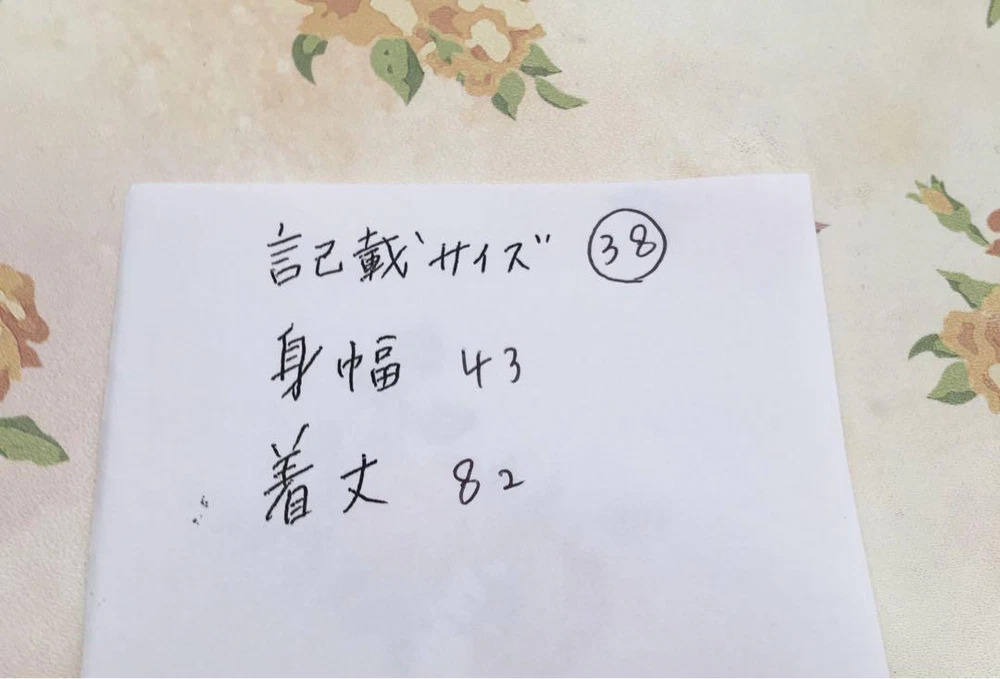 記載サイズ 38
身幅 43
着丈 82